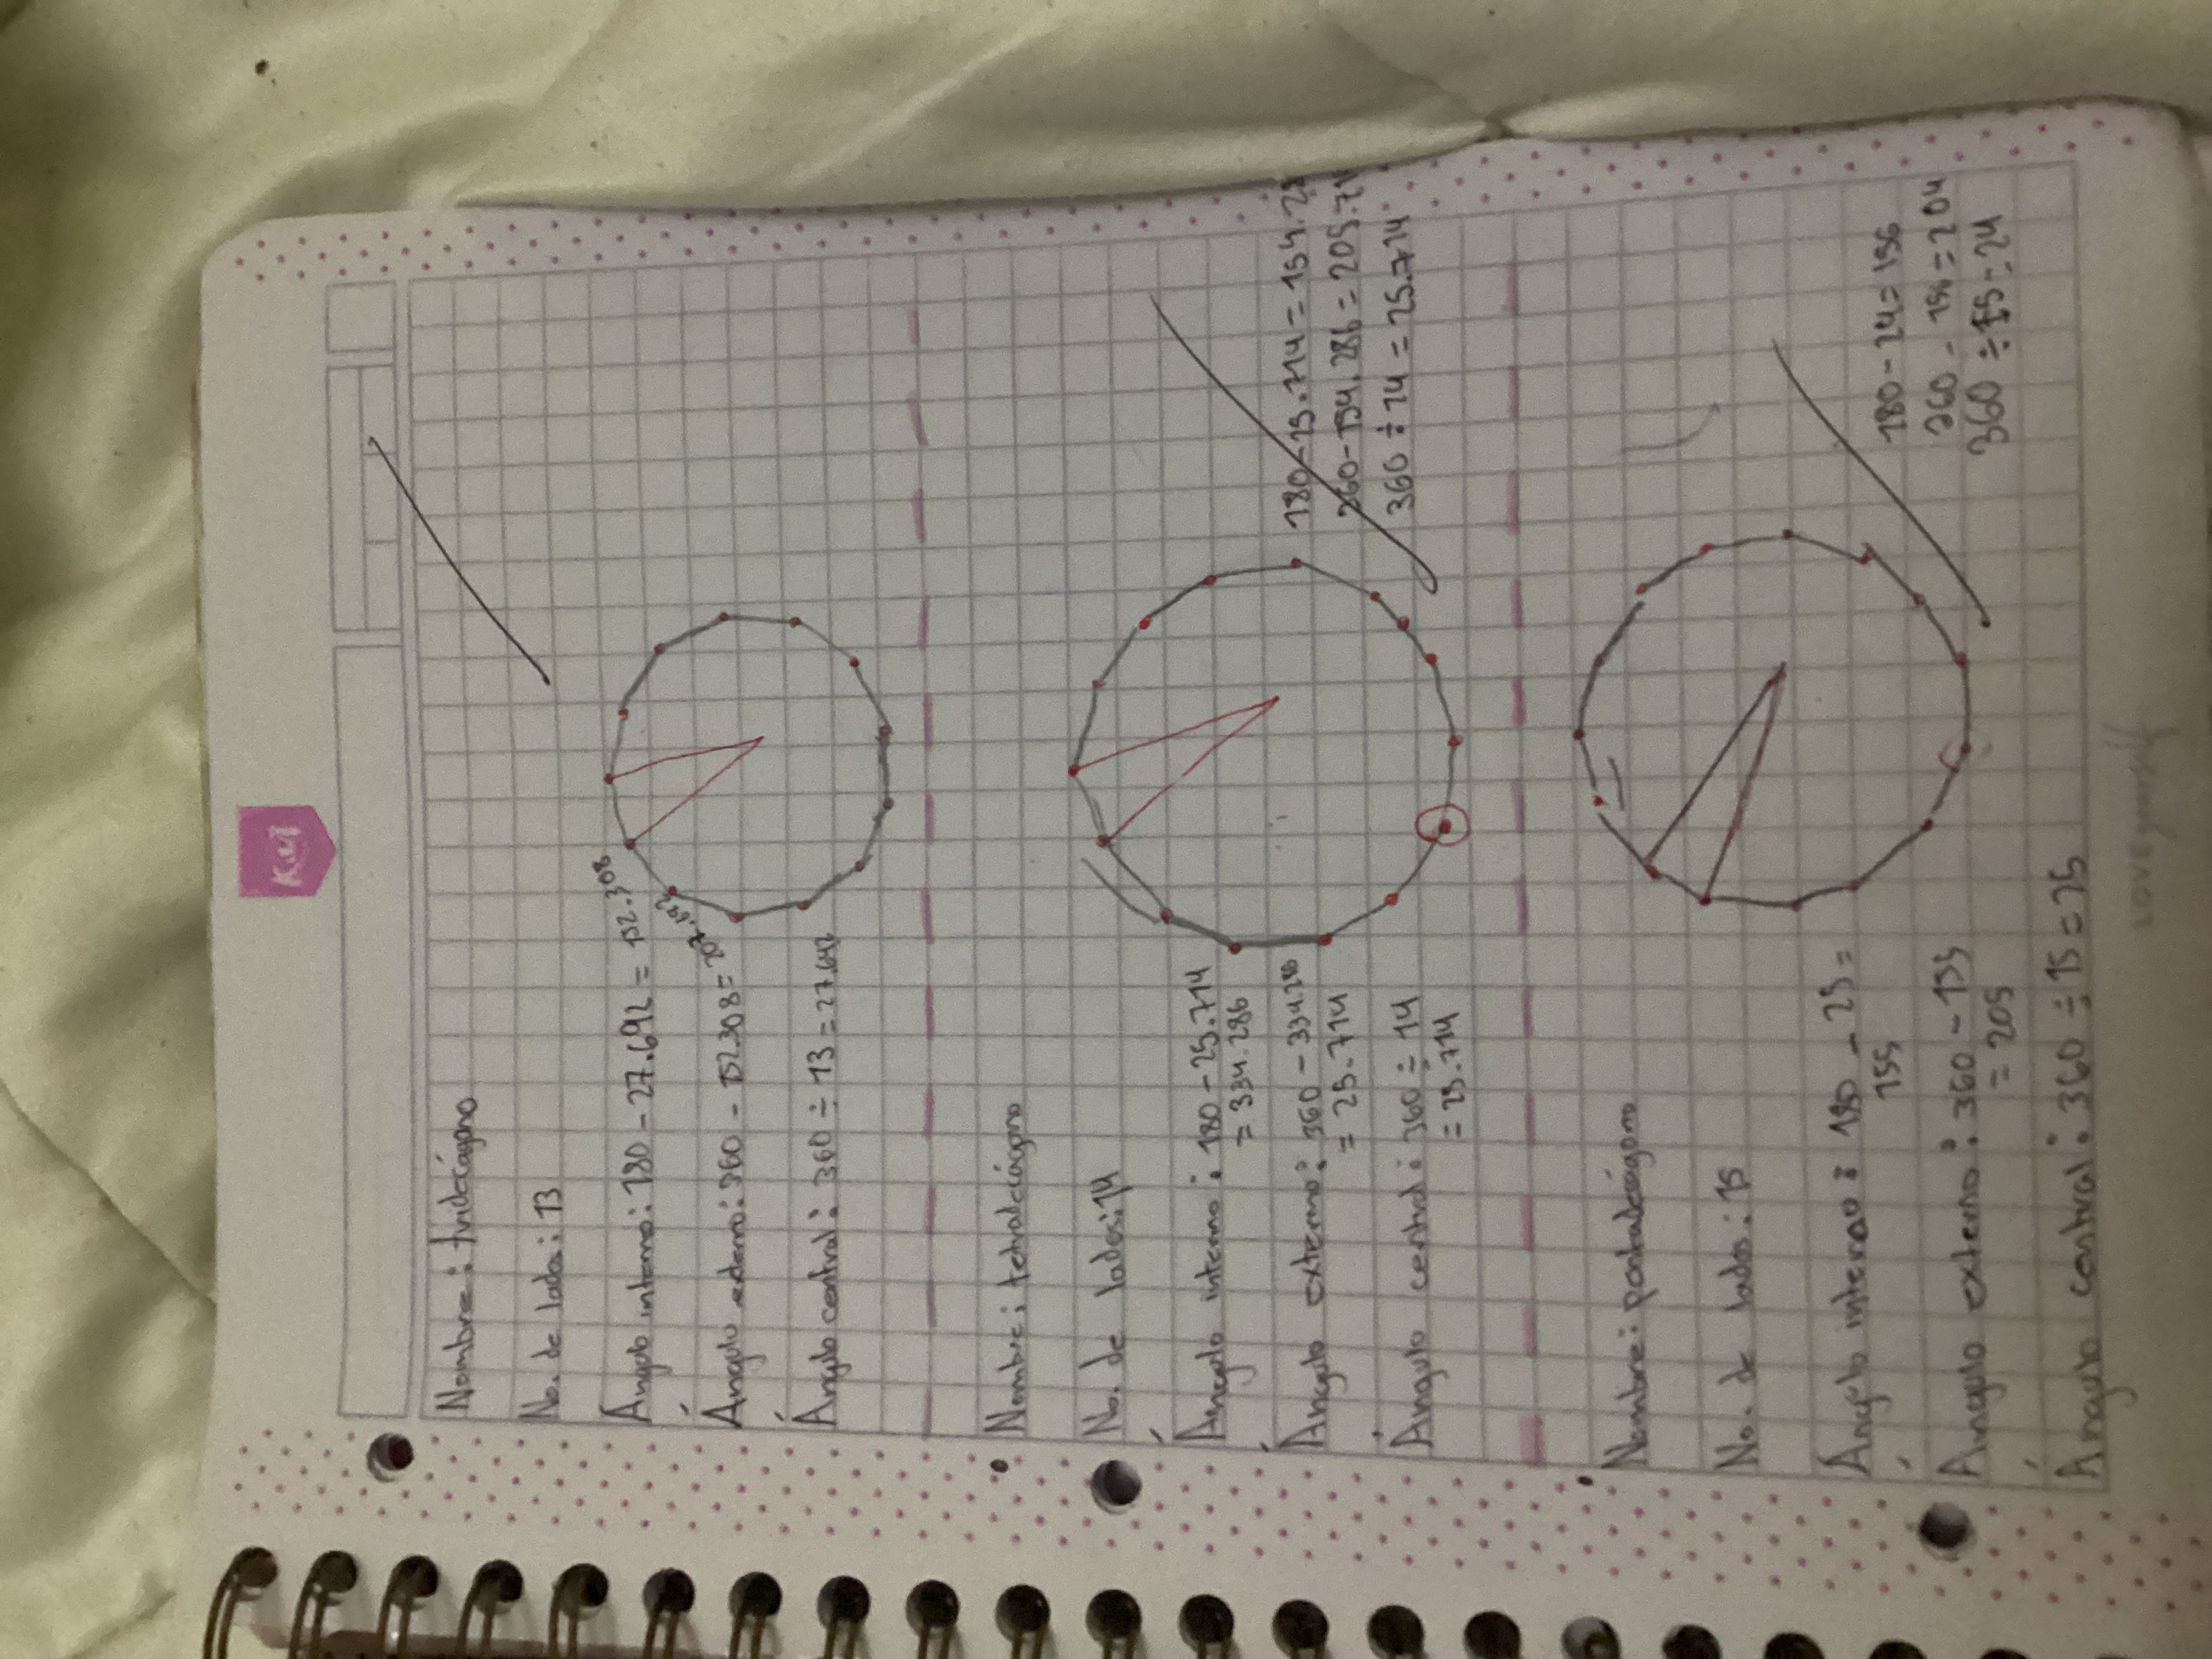 Kiut
Nombre: tridecágono
No. de lados: 13
Ángulo interno: 180 - 27.692 = 152.308
Ángulo externo: 360 - 152.308 = 207.692
Ángulo central: 360 ÷ 13 = 27.692
Nombre: tetradecágono
No. de lados: 14
Ángulo interno: 180 - 25.714
= 334.286
180 - 15.714 = 154.28
Ángulo externo: 360 - 334.286
= 25.714
360 - 154.286 = 205.71
Ángulo central: 360 ÷ 14
= 25.714
360 ÷ 14 = 25.714
Nombre: pentadecágono
No. de lados: 15
Ángulo interno: 180 - 25 =
155
180 - 24 = 156
Ángulo externo: 360 - 155
= 205
360 - 156 = 204
360 ÷ 15 = 24
Ángulo central: 360 ÷ 15 = 25